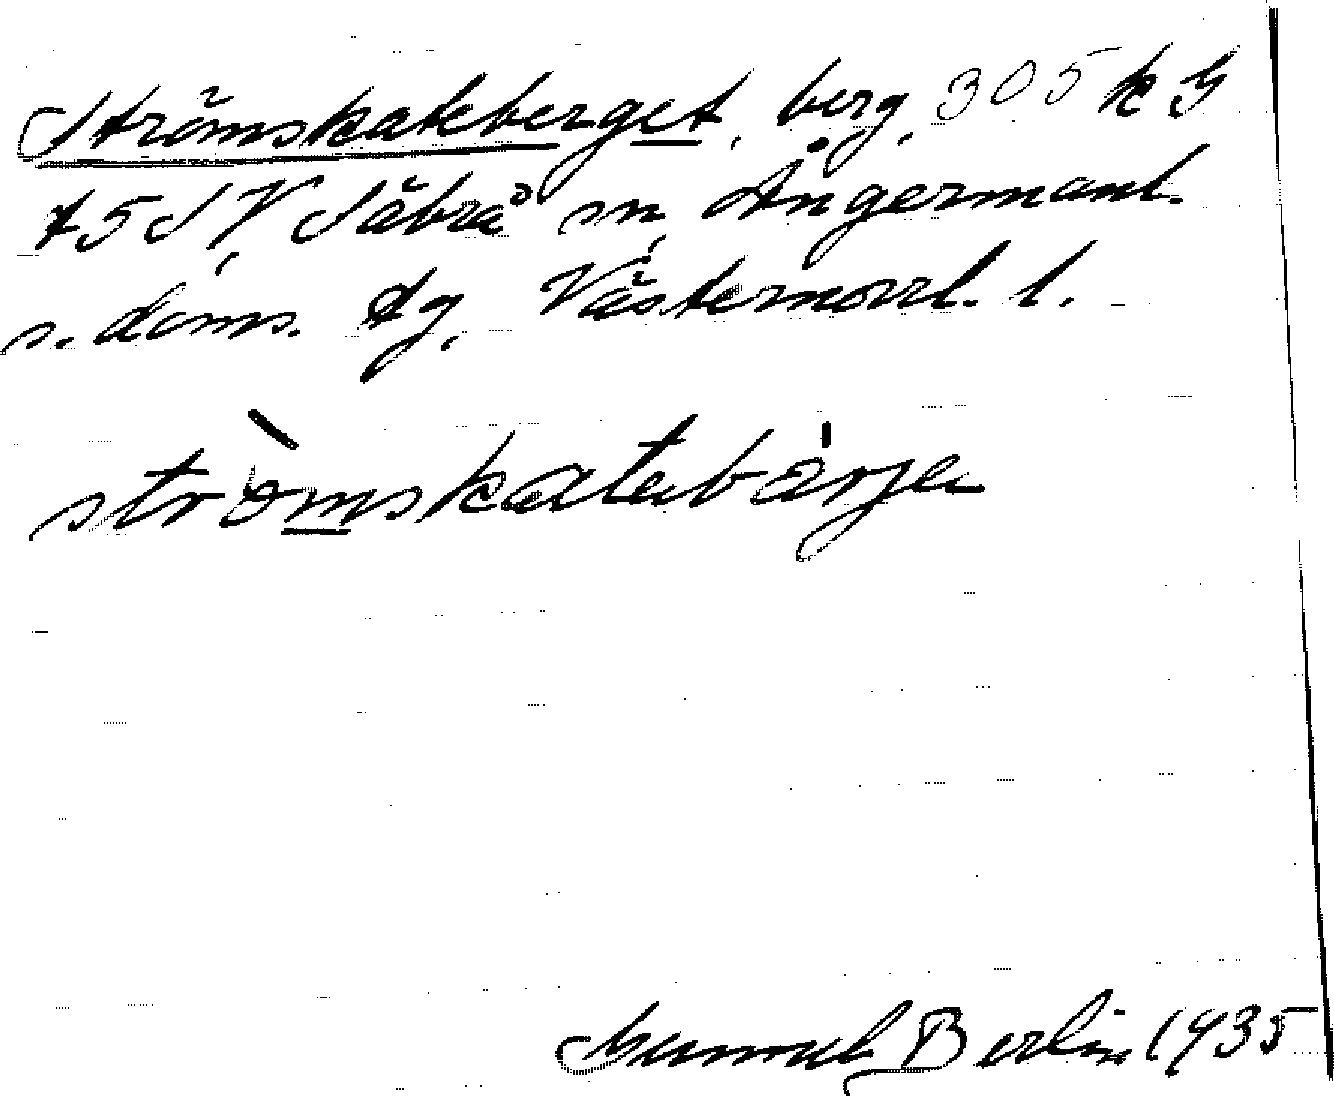 Strömskateberget, berg, 305 k G
t5 SV, Säbrå sn, Ångermanl.
s. doms. dg, Västernorrl. l.
strömskatabärje
Berlin 1935